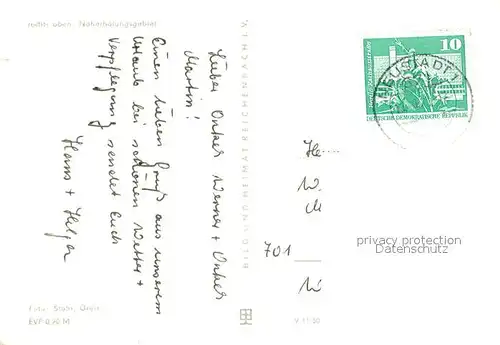 rechts oben: Naherholungsgebiet
Lieber Onkel Werner + Onkel
Martin!
Einen lieben Gruß aus unserem
Urlaub bei schönem Wetter +
Verpflegung sendet Euch
Hans + Helga
Foto: Stabr,
EVP 0,20 M
BILD UND HEIMAT REICHENBACH I. V.
V 11/50
10
DEUTSCHE DEMOKRATISCHE REPUBLIK
NEUSTADT
701
privacy protection
Datenschutz